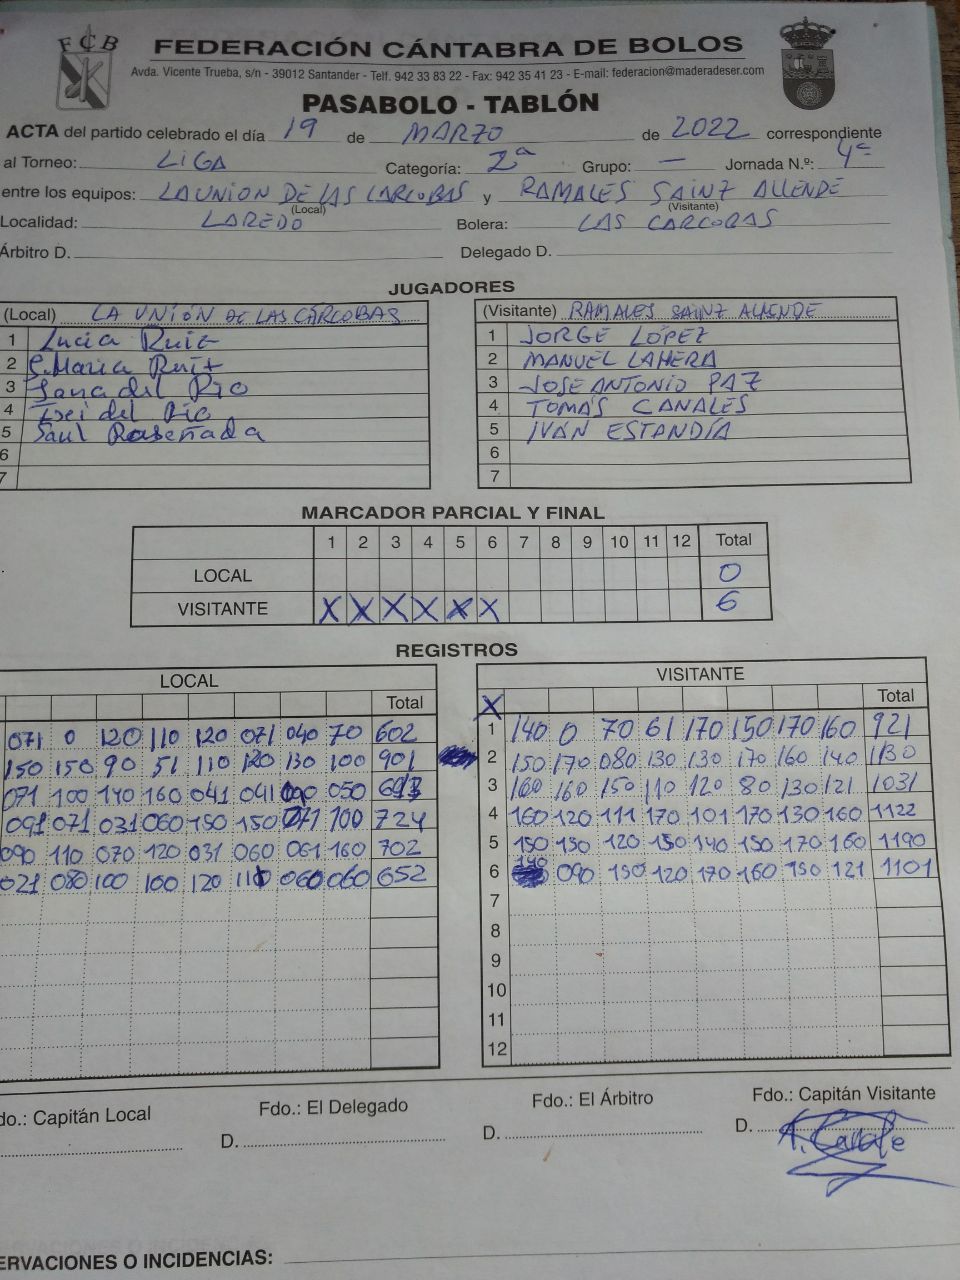 FCB
FEDERACIÓN CÁNTABRA DE BOLOS
Avda. Vicente Trueba, s/n - 39012 Santander - Telf. 942 33 83 22 - Fax: 942 35 41 23 - E-mail: federacion@maderadeser.com
PASABOLO - TABLÓN
ACTA del partido celebrado el día 19 de MARZO de 2022 correspondiente
al Torneo: LIGA Categoría: 2ª Grupo: — Jornada N.º: 4ª
entre los equipos: LA UNION DE LAS CARCOBAS y RAMALES SAINZ ALLENDE
(Local) (Visitante)
Localidad: LAREDO Bolera: LAS CARCOBAS
Árbitro D. Delegado D.
JUGADORES
(Local) LA UNIÓN DE LAS CÁRCOBAS
1 Lucia Ruiz
2 Maria Ruiz
3 del Rio
4 del Rio
5 Saul
6
7
(Visitante) RAMALES SAINZ ALLENDE
1 JORGE LÓPEZ
2 MANUEL LAHERA
3 JOSE ANTONIO PAZ
4 TOMÁS CANALES
5 IVÁN ESTANDÍA
6
7
MARCADOR PARCIAL Y FINAL
1 2 3 4 5 6 7 8 9 10 11 12 Total
LOCAL 0
VISITANTE X X X X X X 6
REGISTROS
LOCAL
Total
071 0 120 110 120 071 040 70 602
150 150 90 51 110 120 130 100 901
071 100 140 160 041 041 090 050 693
091 071 031 060 150 150 071 100 724
090 110 070 120 031 060 061 160 702
021 080 100 100 120 111 060 060 652
VISITANTE
X Total
1 140 0 70 61 170 150 170 160 921
2 150 170 080 130 130 170 160 140 1130
3 160 160 150 110 120 80 130 121 1031
4 160 120 111 170 101 170 130 160 1122
5 150 150 120 150 140 150 170 160 1190
6 140 090 150 120 170 160 150 121 1101
7
8
9
10
11
12
do.: Capitán Local Fdo.: El Delegado Fdo.: El Árbitro Fdo.: Capitán Visitante
D. D. D.
ERVACIONES O INCIDENCIAS: